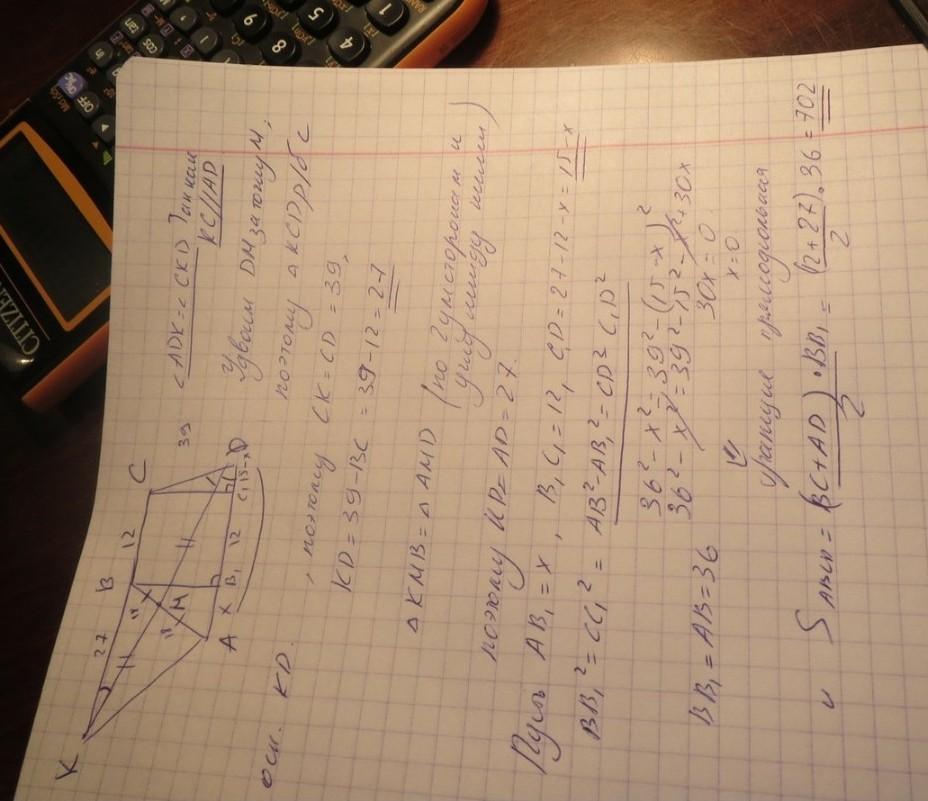 K 27 B 12 C
39
M
A x B₁ 12 C₁ 15-x D
∠ADK = ∠CKD так как
KC//AD
Удвоим DM за точку M,
поэтому △KCD р/б с
осн. KD. , поэтому CK = CD = 39,
KD = 39-BC = 39-12 = 27
△KMB = △AMD (по 2 сторонам и
углу между ними)
поэтому KD = AD = 27.
Пусть AB₁ = x, B₁C₁ = 12, C₁D = 27-12-x = 15-x
BB₁² = CC₁² = AB²-AB₁² = CD² C₁D²
36²-x² = 39²-(15-x)²
36²-x² = 39²-15²-x²+30x
30x = 0
x = 0
BB₁ = AB = 36 трапеция прямоугольная
и S ABCD = (BC+AD)·BB₁ / 2 = (12+27)·36 / 2 = 702
CITIZEN
OFF
cos
tan
1
4
5
8
9